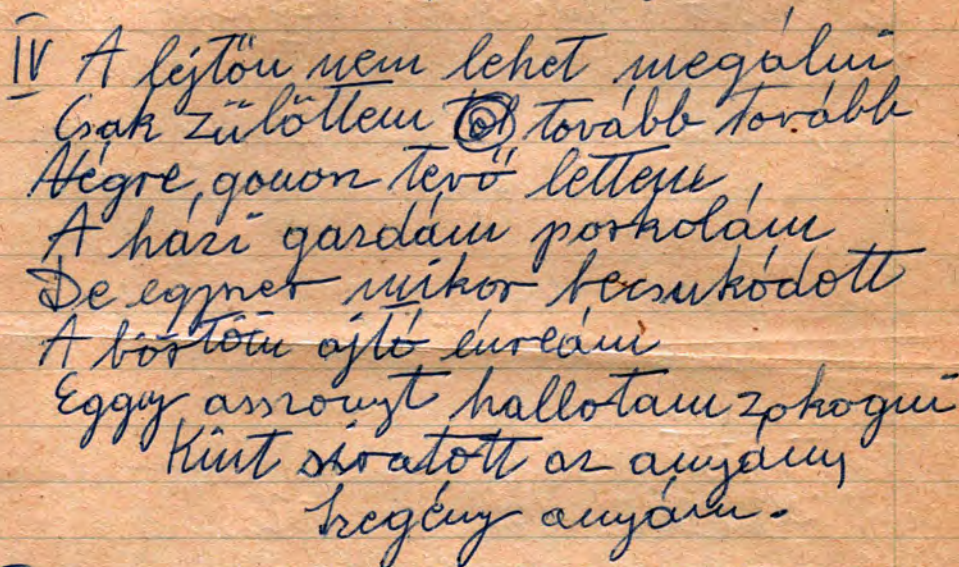 IV A lejtőn nem lehet megálni
Csak zülöttem tovább tovább
Végre, gonosz tevő lettem,
A házi gazdám porkolám
De egyszer mikor becsukódott
A börtön ajtó énreám
Eggy asszonyt hallotam zokogni
Kint siratott az anyám,
Szegény anyám.